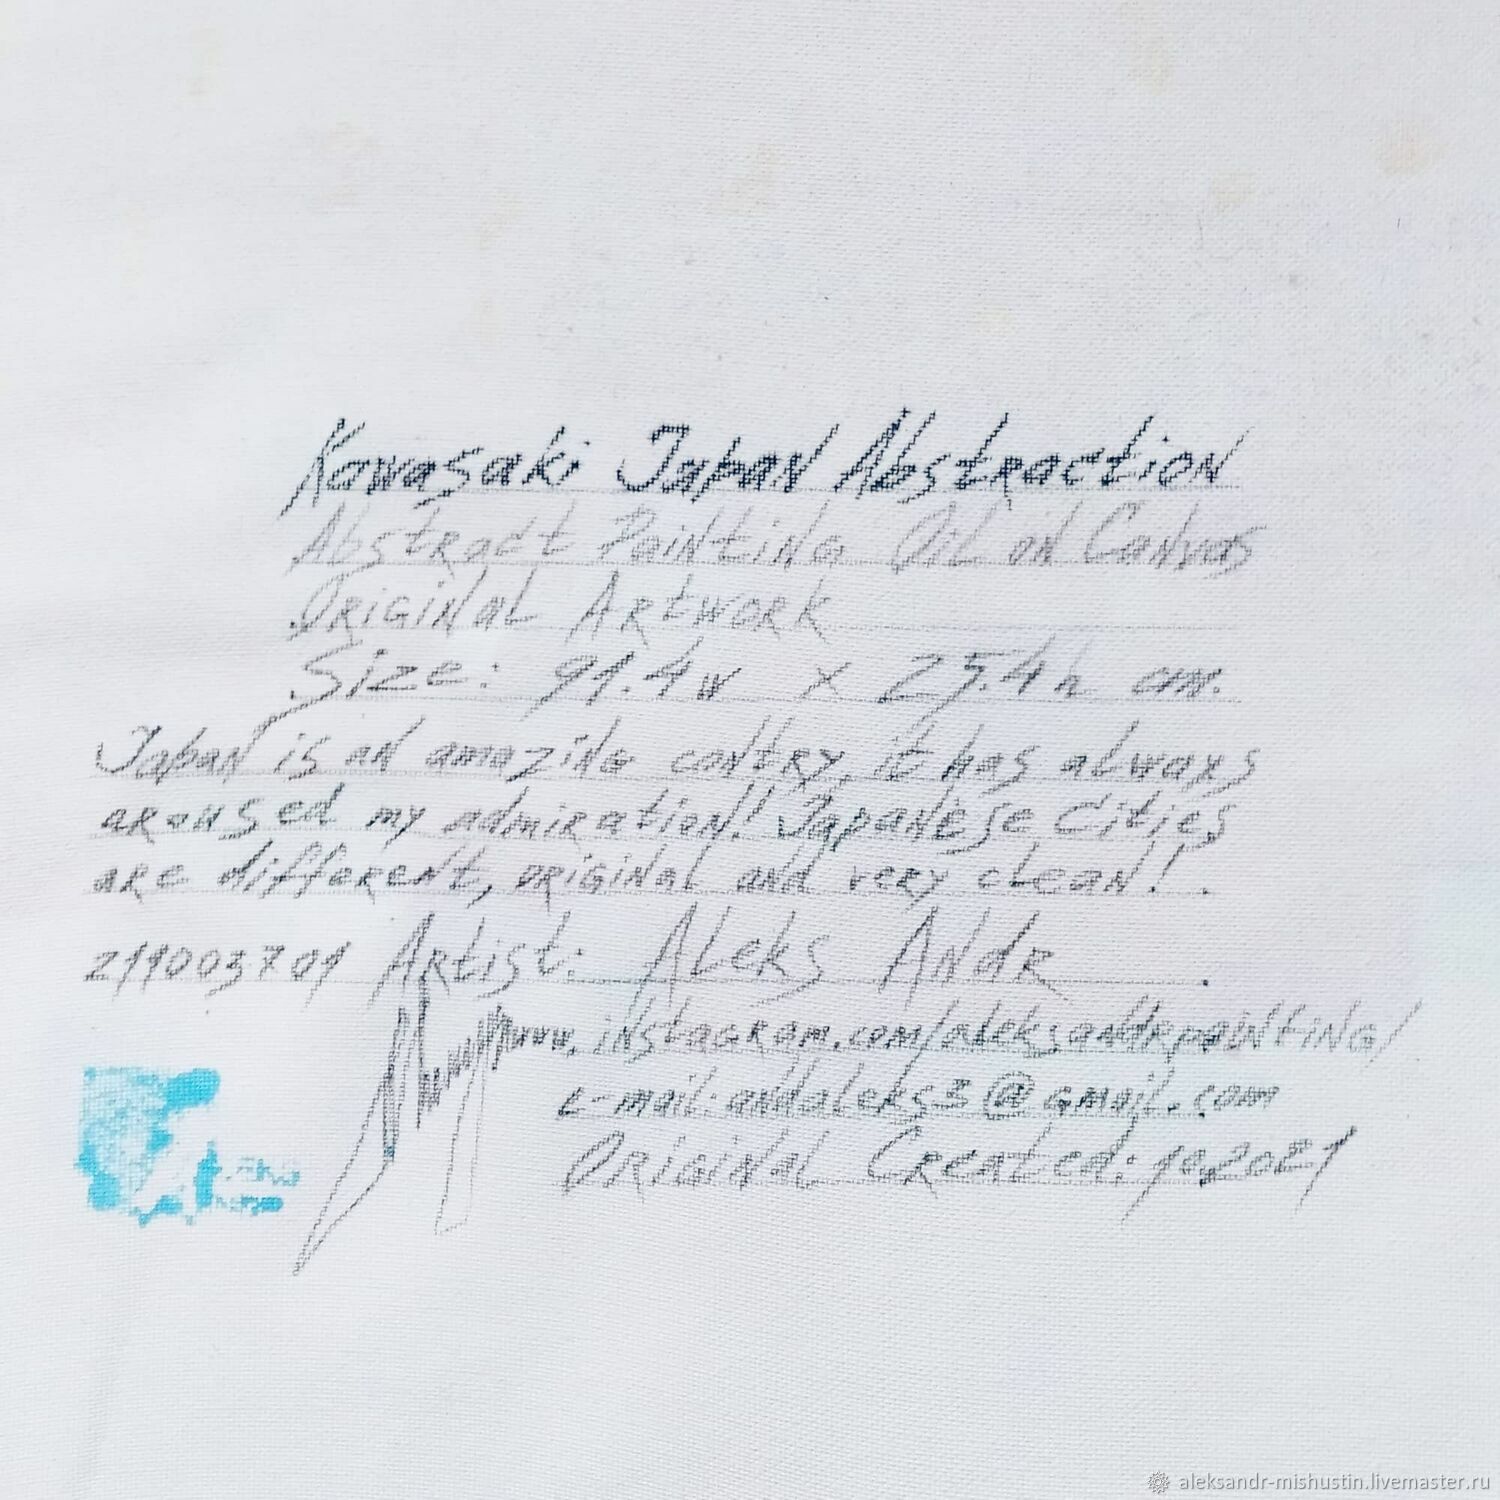 Kawasaki Japan Abstraction
Abstract Painting Oil on Canvas
Original Artwork
Size: 91.4w x 25.4h cm.
Japan is an amazing contry, it has always
aroused my admiration! Japanese Cities
are different, original and very clean!.
211003701 Artist: Aleks Andr.
www.instagram.com/aleksandrpainting/
e-mail: andaleks3@gmail.com
Original Created: 10.2021
aleksandr-mishustin.livemaster.ru